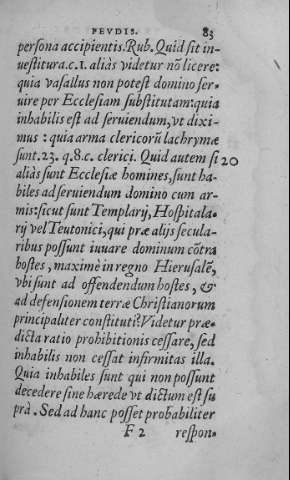 FEVDIS. 83
persona accipientis. Rub. Quid sit in-
uestitura.c.1. aliàs videtur nō licere:
quia vasallus non potest domino ser-
uire per Ecclesiam substitutam: quia
inhabilis est ad seruiendum, vt dixi-
mus : quia arma clericorū lachrymæ
sunt. 23. q. 8. c. clerici. Quid autem si 20
aliàs sunt Ecclesiæ homines, sunt ha-
biles ad seruiendum domino cum ar-
mis: sicut sunt Templarij, Hospitala-
rij vel Teutonici, qui præ alijs secula-
ribus possunt iuuare dominum cōtra
hostes, maximè in regno Hierusalē,
vbi sunt ad offendendum hostes, &
ad defensionem terræ Christianorum
principaliter constituti? Videtur præ-
dicta ratio prohibitionis cessare, sed
inhabilis non cessat infirmitas illa.
Quia inhabiles sunt qui non possunt
decedere sine hærede vt dictum est su
prà. Sed ad hanc posset probabiliter
F 2 respon-